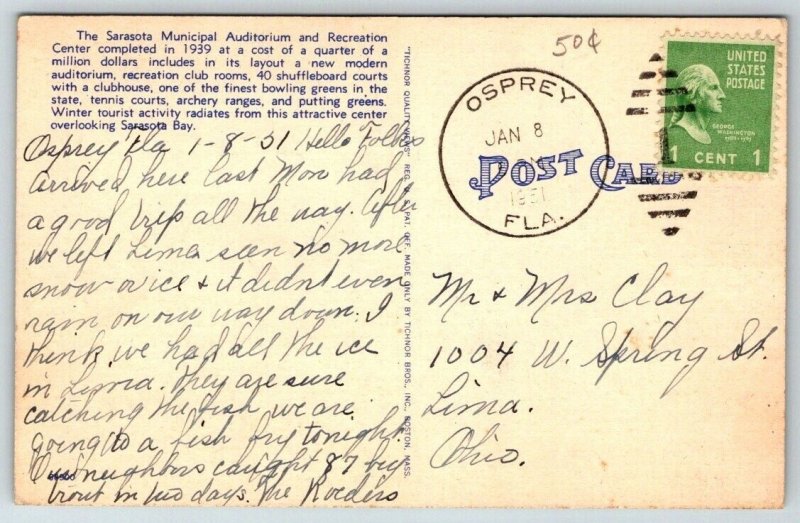 The Sarasota Municipal Auditorium and Recreation
Center completed in 1939 at a cost of a quarter of a
million dollars includes in its layout a new modern
auditorium, recreation club rooms, 40 shuffleboard courts
with a clubhouse, one of the finest bowling greens in the
state, tennis courts, archery ranges, and putting greens.
Winter tourist activity radiates from this attractive center
overlooking Sarasota Bay.
Osprey Fla 1-8-51 Hello Folks
Arrived here last Mon had
a good trip all the way. After
we left Lima seen no more
snow or ice & it didnt even
rain on our way down. I
think we had all the ice
in Lima. They are sure
catching the fish we are
going to a fish fry tonight.
Our neighbors caught 87 big
trout in two days. The Roeders
"TICHNOR QUALITY VIEWS" REG. U. S. PAT. OFF. MADE ONLY BY TICHNOR BROS., INC. BOSTON, MASS.
50¢
OSPREY
JAN 8
1951
FLA.
POST CARD
UNITED
STATES
POSTAGE
GEORGE
WASHINGTON
1 CENT 1
Mr & Mrs Clay
1004 W. Spring St.
Lima.
Ohio.